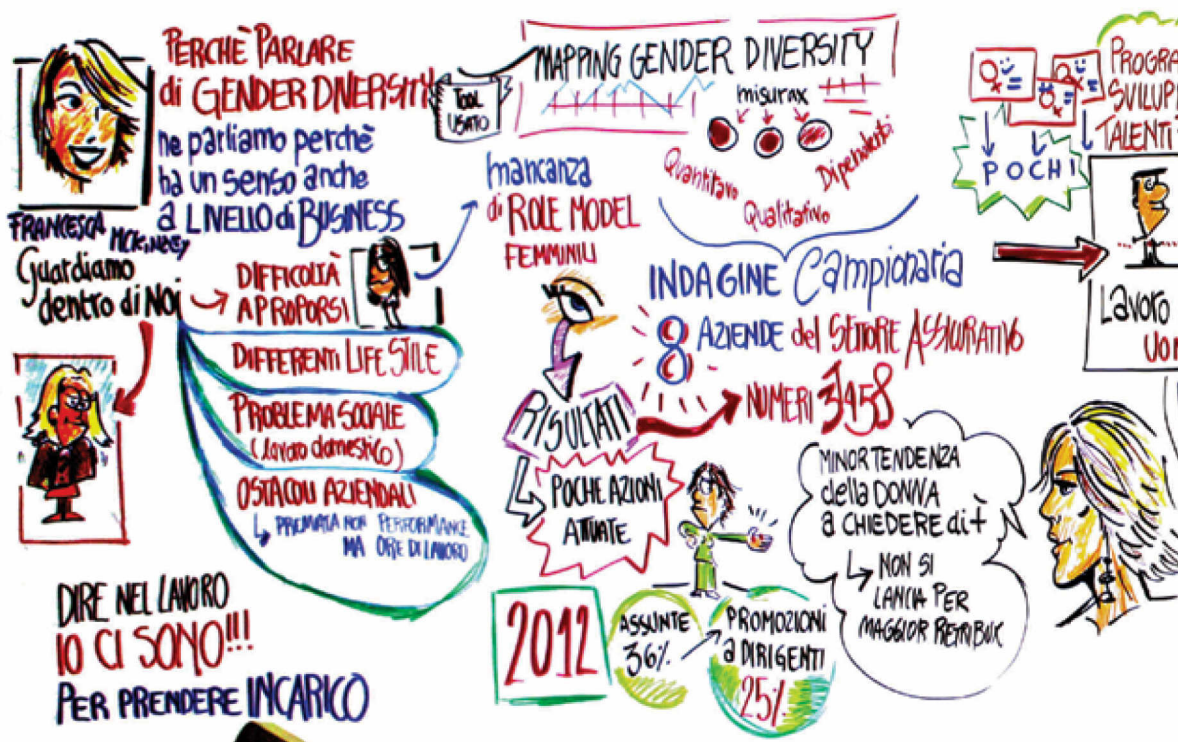 PERCHÈ PARLARE
di GENDER DIVERSITY
ne parliamo perchè
ha un senso anche
a LIVELLO di BUSINESS
FRANCESCA MCKINSEY
Guardiamo
dentro di NOI
DIFFICOLTÀ
A PROPORSI
DIFFERENTI LIFE STILE
PROBLEMA SOCIALE
(lavoro domestico)
OSTACOLI AZIENDALI
PREMIATA NON PERFORMANCE
MA ORE DI LAVORO
DIRE NEL LAVORO
IO CI SONO!!!
PER PRENDERE INCARICO
TOOL
USATO
MAPPING GENDER DIVERSITY
misurax
Quantitavo
Qualitativo
Dipendenti
mancanza
di ROLE MODEL
FEMMINILI
INDAGINE Campionaria
8 AZIENDE del SETTORE ASSICURATIVO
RISULTATI
NUMERI 3458
POCHE AZIONI
ATTUATE
2012
ASSUNTE
36%
PROMOZIONI
a DIRIGENTI
25%
MINOR TENDENZA
della DONNA
a CHIEDERE di +
NON SI
LANCIA PER
MAGGIOR RETRIBUX
PROGRA
SVILUP
TALENTI
POCHI
Lavoro
UOM